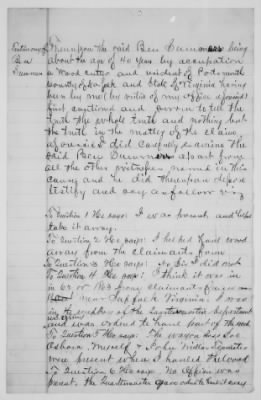 Testimony of
Ben
Thereupon the said Ben being
about the age of 40 years by occupation
a wood cutter and resident of Portsmouth
County of Norfolk and State of Virginia having
been by me by virtue of my office
first cautioned and sworn to tell the
truth the whole truth and nothing but
the truth in the matter of the claim
aforesaid I did carefully examine the
said Ben apart from
all the other witnesses named in this
cause and he did thereupon depose
testify and say as follows viz
To Question 1 He says: I was present, and helped
take it away.
To Question 2 He says: I helped haul wood
away from the claimants farm
To Question 3 He says: No Sir I did not
To Question 4 He says: I think it was in
in 62 or 1863 from claimants
near Suffolk Virginia. I was
in the employ of the Quartermasters department
and was ordered to haul part of the wood
To Question 5 He says: The wagon master
Myself &
were present when I hauled the wood
To Question 6 He says: No Officer was
present. the Quartermaster gave